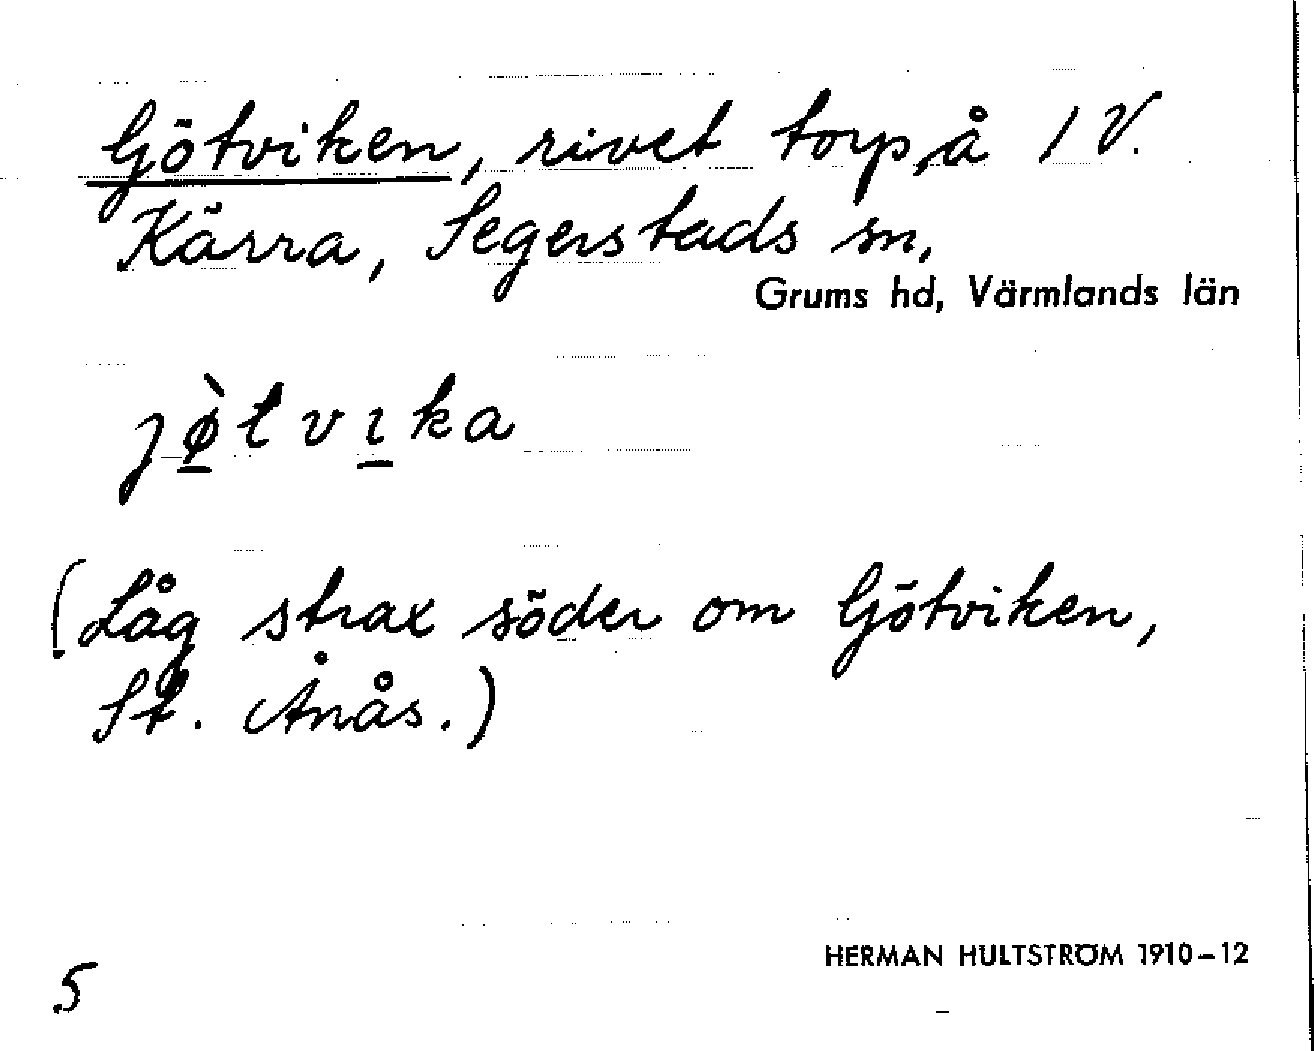 Götviken, rivet torp å 1 V.
Kärra, Segerstads sn,
Grums hd, Värmlands län
jø̀tvıka
(Låg strax söder om Götviken,
St. Ånås.)
HERMAN HULTSTRÖM 1910–12
5